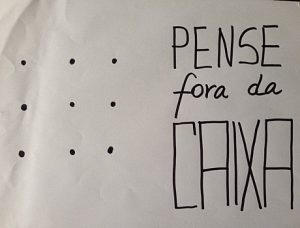 PENSE
fora da
CAIXA